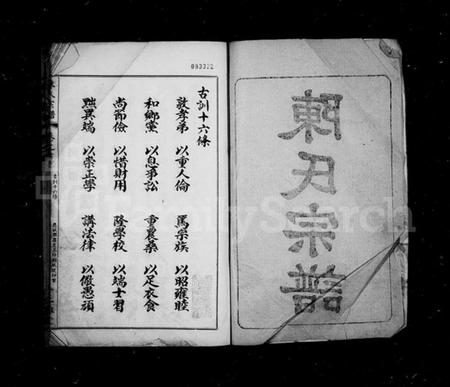 陳氏宗譜
古訓十六條
敦孝弟 以重人倫 篤宗族 以昭雍睦
和鄉黨 以息爭訟 重農桑 以足衣食
尚節儉 以惜財用 隆學校 以端士習
黜異端 以崇正學 講法律 以儆愚頑
古訓十六條
FamilySearch